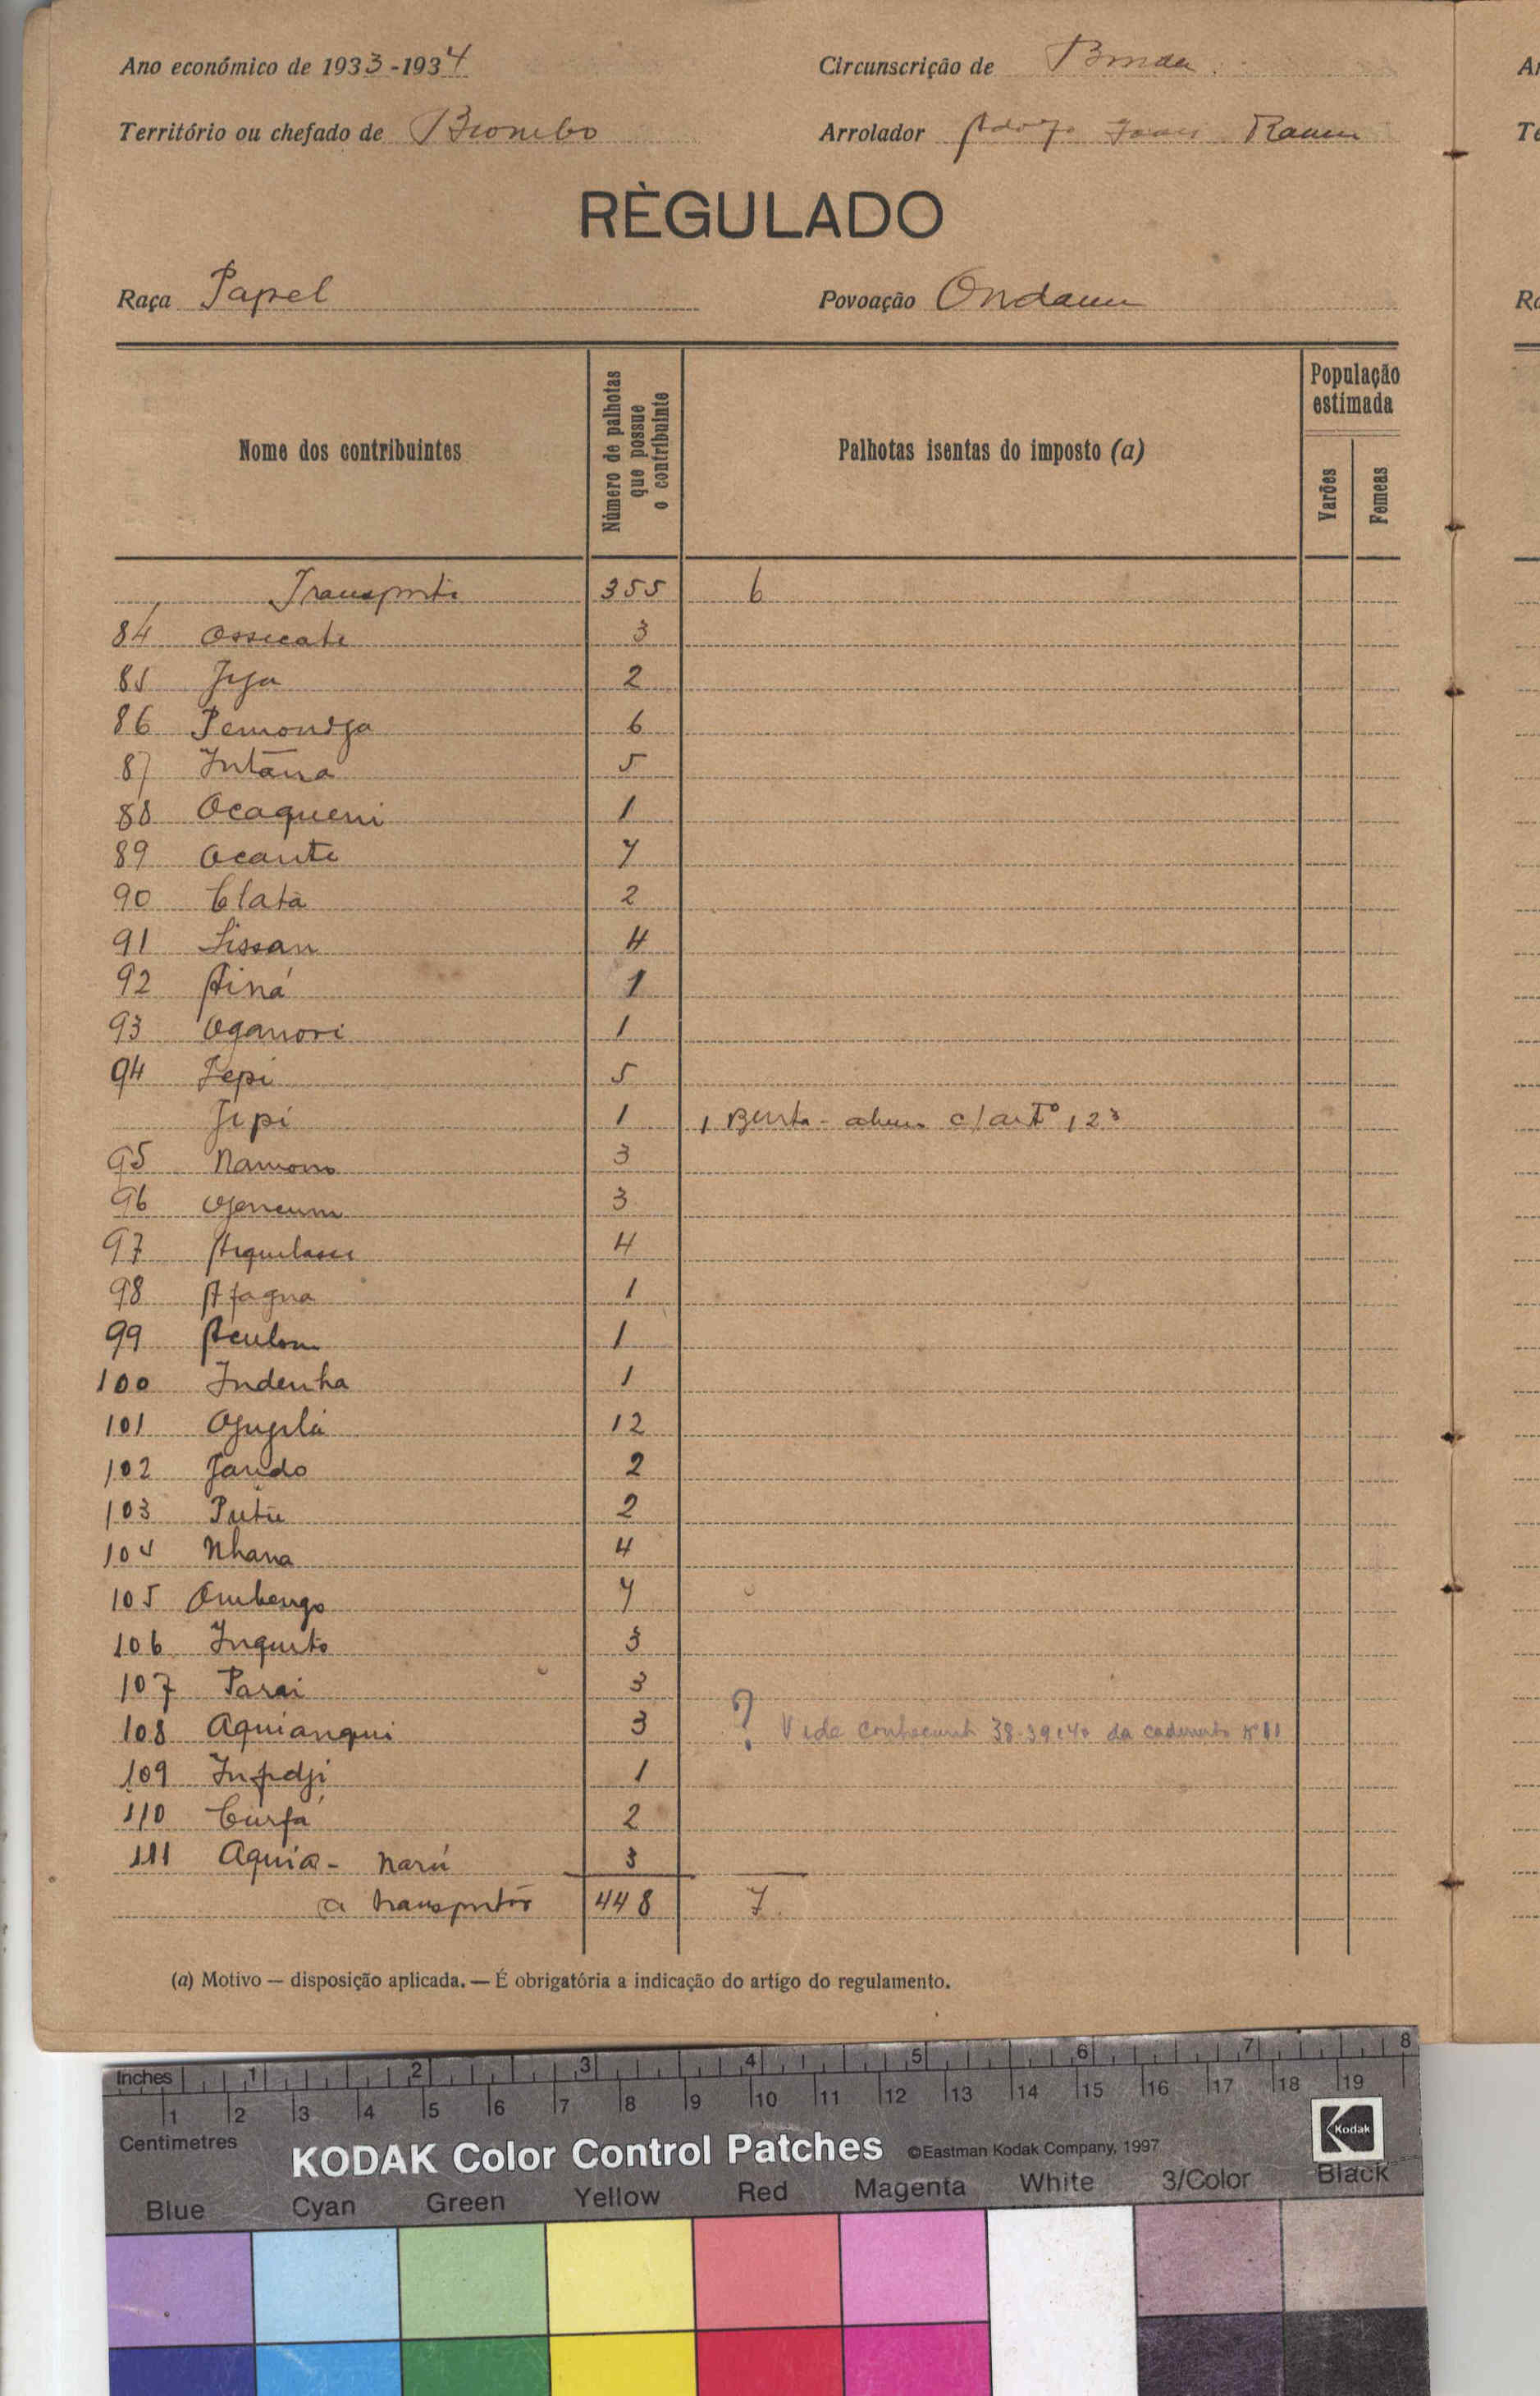 Ano económico de 1933-1934
Circunscrição de
Território ou chefado de Biombo
Arrolador Adolfo Ramos
RÈGULADO
Raça Papel
Povoação Ondame
Nome dos contribuintes
Número de palhotas que possue o contribuinte
Palhotas isentas do imposto (a)
População estimada
Varões
Femeas
Transporte 355 6
84 Ossecate 3
85 2
86 6
87 Intana 5
88 Ocaqueni 1
89 Ocante 7
90 Clatà 2
91 Lissan 4
92 Ainá 1
93 Oganori 1
94 Jepi 5
Jepi 1 1 c/artº 123
95 3
96 3
97 4
98 Afagna 1
99 1
100 Indenha 1
101 12
102 Jando 2
103 2
104 Nhana 4
105 Ombengo 7
106 3
107 Parai 3
108 Aquianqui 3 ? Vide 38-39 e 40 da caderneta nº 11
109 1
110 Curfá 2
111 Aquia - Narú 3
a transportar 448 7
(a) Motivo — disposição aplicada. — É obrigatória a indicação do artigo do regulamento.
Inches 1 2 3 4 5 6 7 8
1 2 3 4 5 6 7 8 9 10 11 12 13 14 15 16 17 18 19
Centimetres
KODAK Color Control Patches ©Eastman Kodak Company, 1997 Kodak
Blue Cyan Green Yellow Red Magenta White 3/Color Black